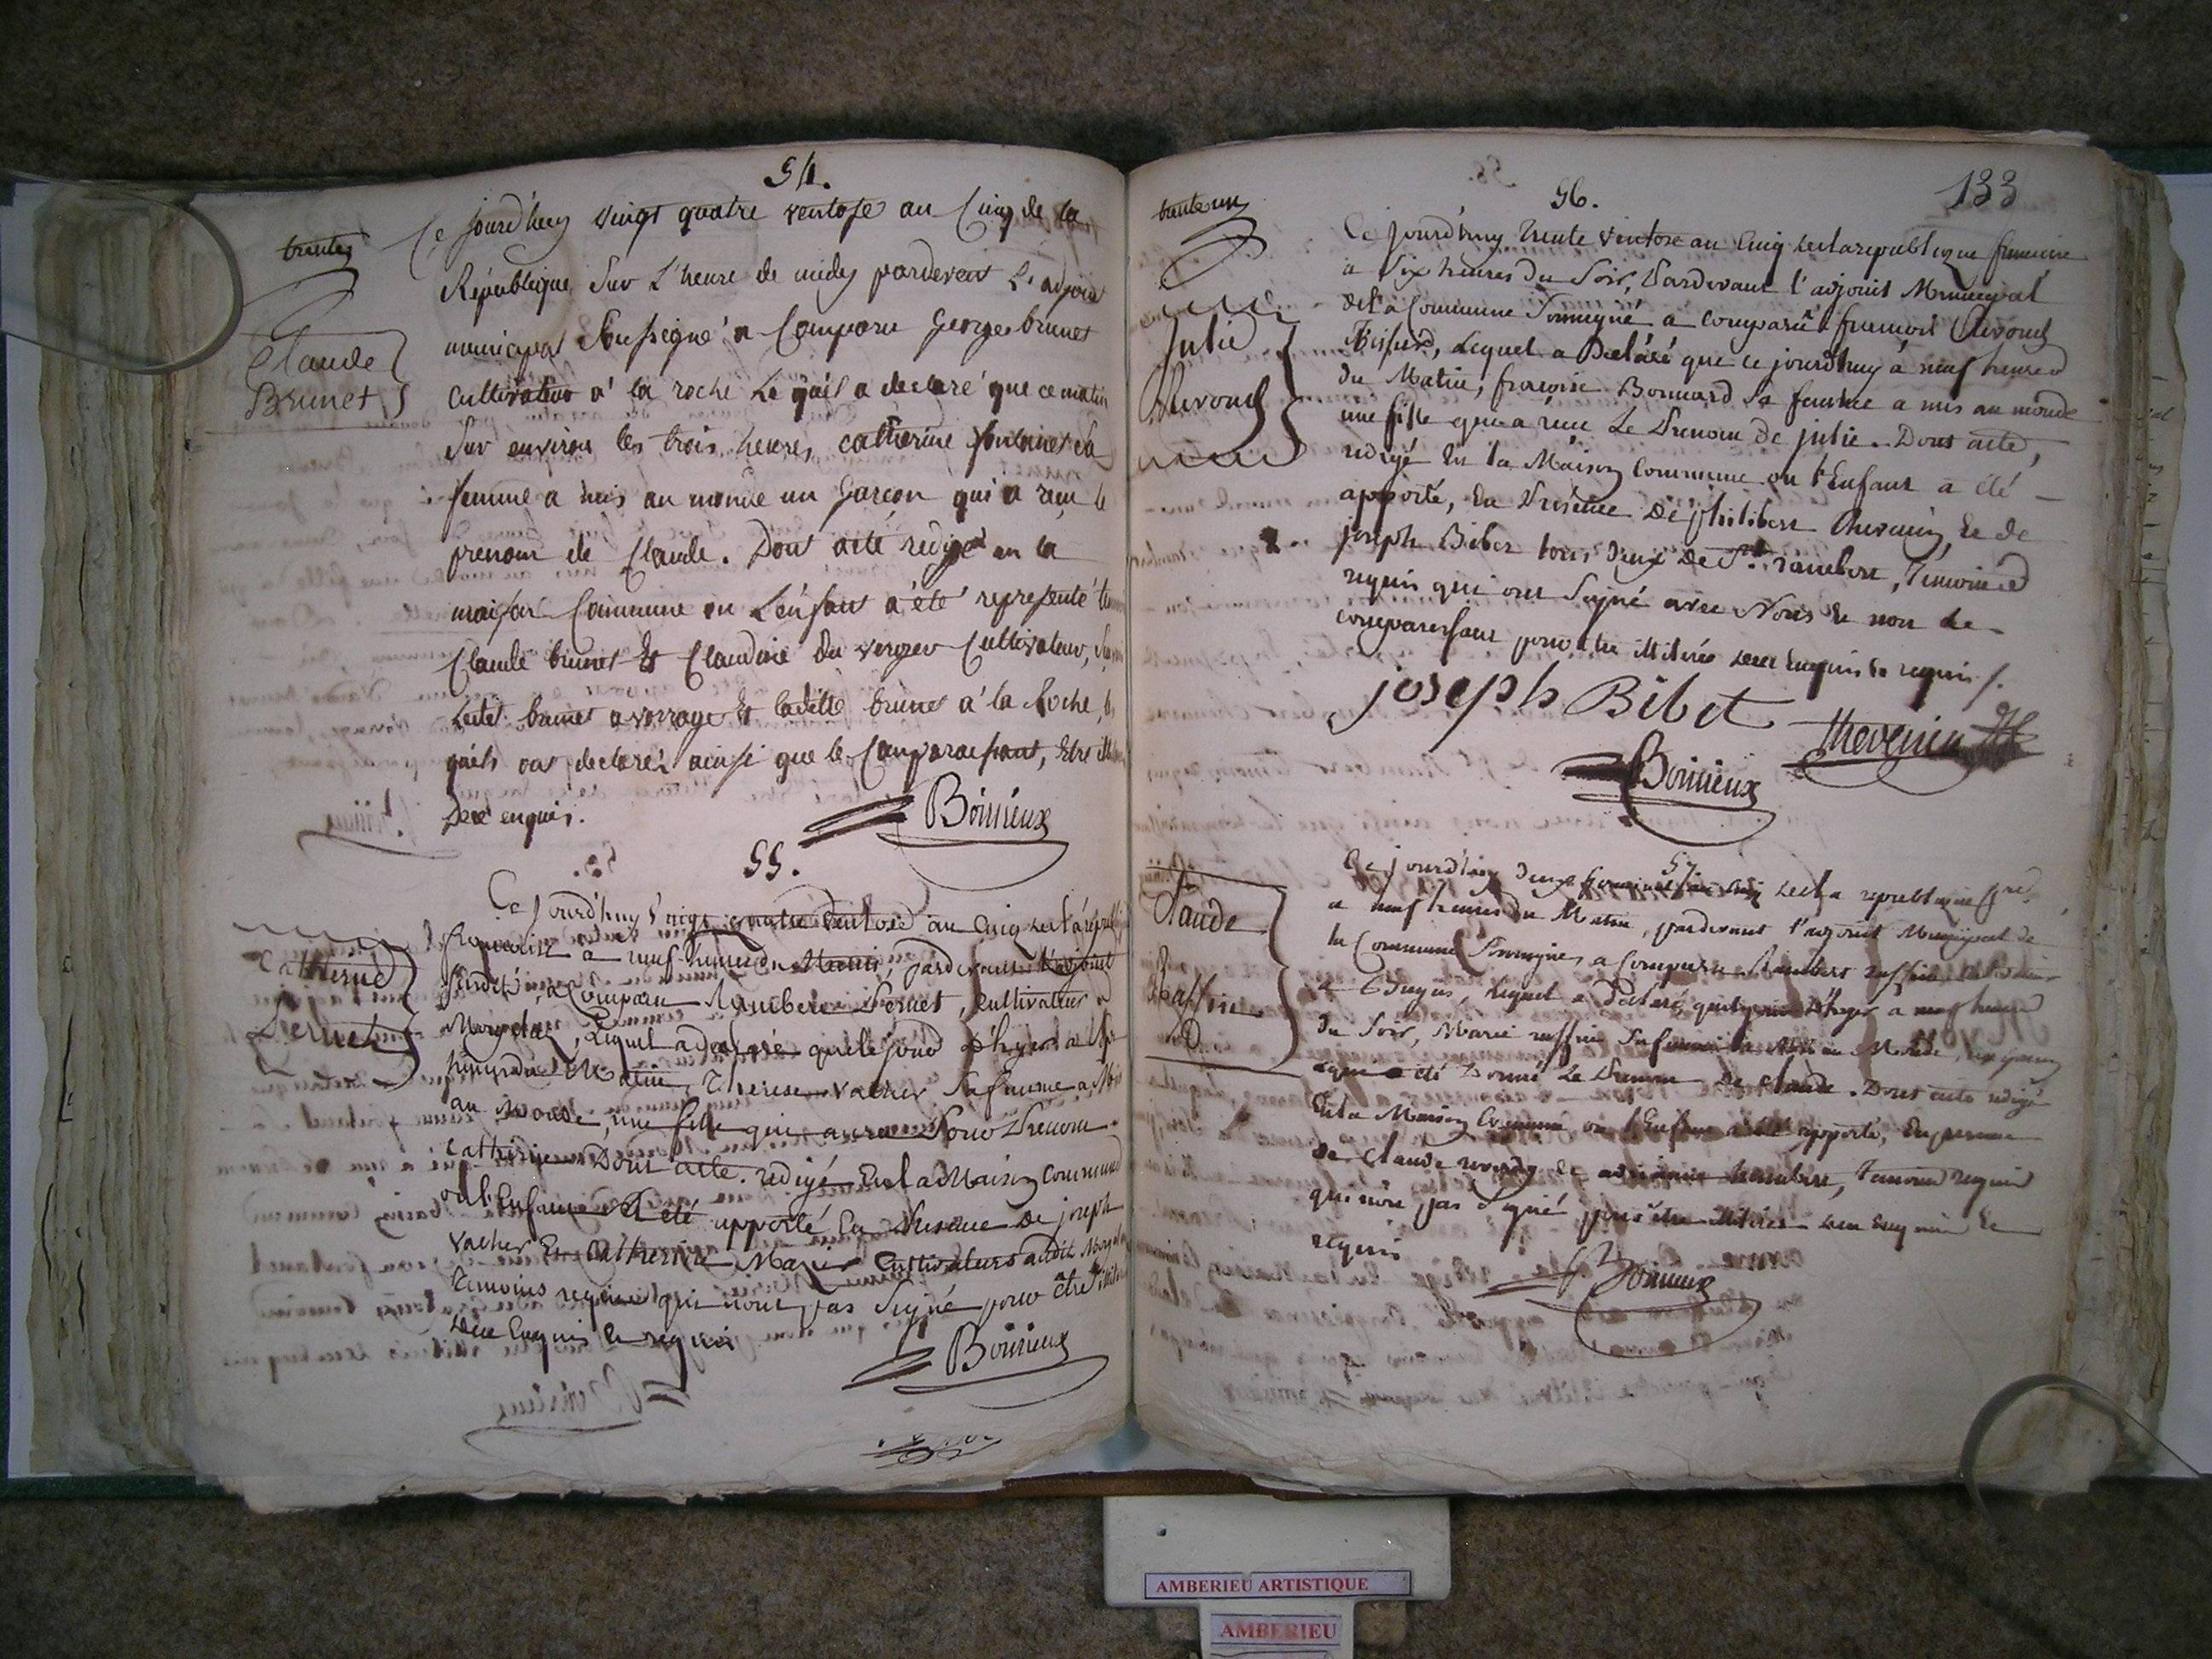 54.
trente
Claude
Brunet
Ce jourd'huy vingt quatre ventose an Cinq de la
République sur L'heure de midy pardevant L'adjoint
municipal soussigné a Comparu George brunet
cultivateur à la roche Le quel a declaré que ce matin
sur environ les trois heures, catherine sa
femme a mis au monde un garçon qui a reçu le
prenom de Claude. Dont acte redigé en la
maison Commune ou L'enfant a été representé
Claude brunet Et Claudine du verger Cultivateur,
Ledit brunet a Et ladite brunet à la Roche,
quels ont declarés ainsi que le Comparaissant, Etre
De ce enquis.
Boirieux
55.
Catherine
Pernet
Ce Jourd'huy Vingt quatre Ventose an Cinq de la
françoise a neuf heures du Matin, pardevant L'adjoint
susdit, a Comparu Rambert Pernet, Cultivateur a
Lequel a declaré que le jour d'hyer a
heures du Matin, Therese vacher Sa femme a Mis
au Monde, une fille qui a reçu Pour Prenom
Catherine Dont acte redigé En la Maison Commune
ou l'Enfant A été apporté En Presence De joseph
vacher Et Catherine Cultivateurs audit
temoins requis qui n'ont pas Signé pour être
De ce Enquis Et requis
Boirieux
133
56.
trente un
Julie
Ce jourd'huy trente ventose an Cinq de la republique francaise
a Six heures du Soir, Pardevant l'adjoint Municipal
de la Commune Soussigné a Comparu françois
Lequel a Declaré que ce jourd'huy à neuf heures
du Matin, françoise Bonnard Sa femme a mis au monde
une fille qui a reçu Le Prenom de julie. Dont acte,
redigé En la Maison Commune ou l'Enfant a été
apporté, En Présence De philibert Thevenin, Et de
joseph Bibet tous deux de St. rambert, Temoins
requis qui ont Signé avec Nous Et non le
comparaissant pour être illitéré de ce Enquis Et requis /.
joseph Bibet
thevenin
Boirieux
57
Claude
Ruffin
Ce jourd'huy deux Germinal an Cinq de la republique
a neuf heures du Matin, pardevant l'adjoint Municipal de
la Commune Soussigné, a Comparu Rambert ruffin
Lequel a Declaré que le jour d'hyer à neuf heures
du Soir, Marie ruffin Sa femme a Mis au Monde,
a été Donné Le Prenom De Claude. Dont acte redigé
En la Maison Commune ou l'Enfant a été apporté, En presence
De Claude Et rambert, temoins requis
qui n'ont pas Signé pour être illitérés de ce Enquis Et
requis
Boirieux
AMBERIEU ARTISTIQUE
AMBERIEU